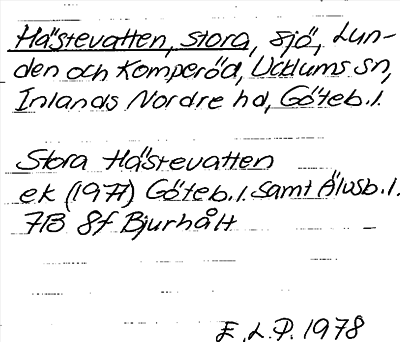 Hästevatten, stora, sjö, Lun-
den och Komperöd, Ucklums sn,
Inlands Nordre hd, Göteb. l.
Stora Hästevatten
ek (1977) Göteb. l. samt Älvsb. l.
7B 8f Bjurhålt
E. L. P. 1978